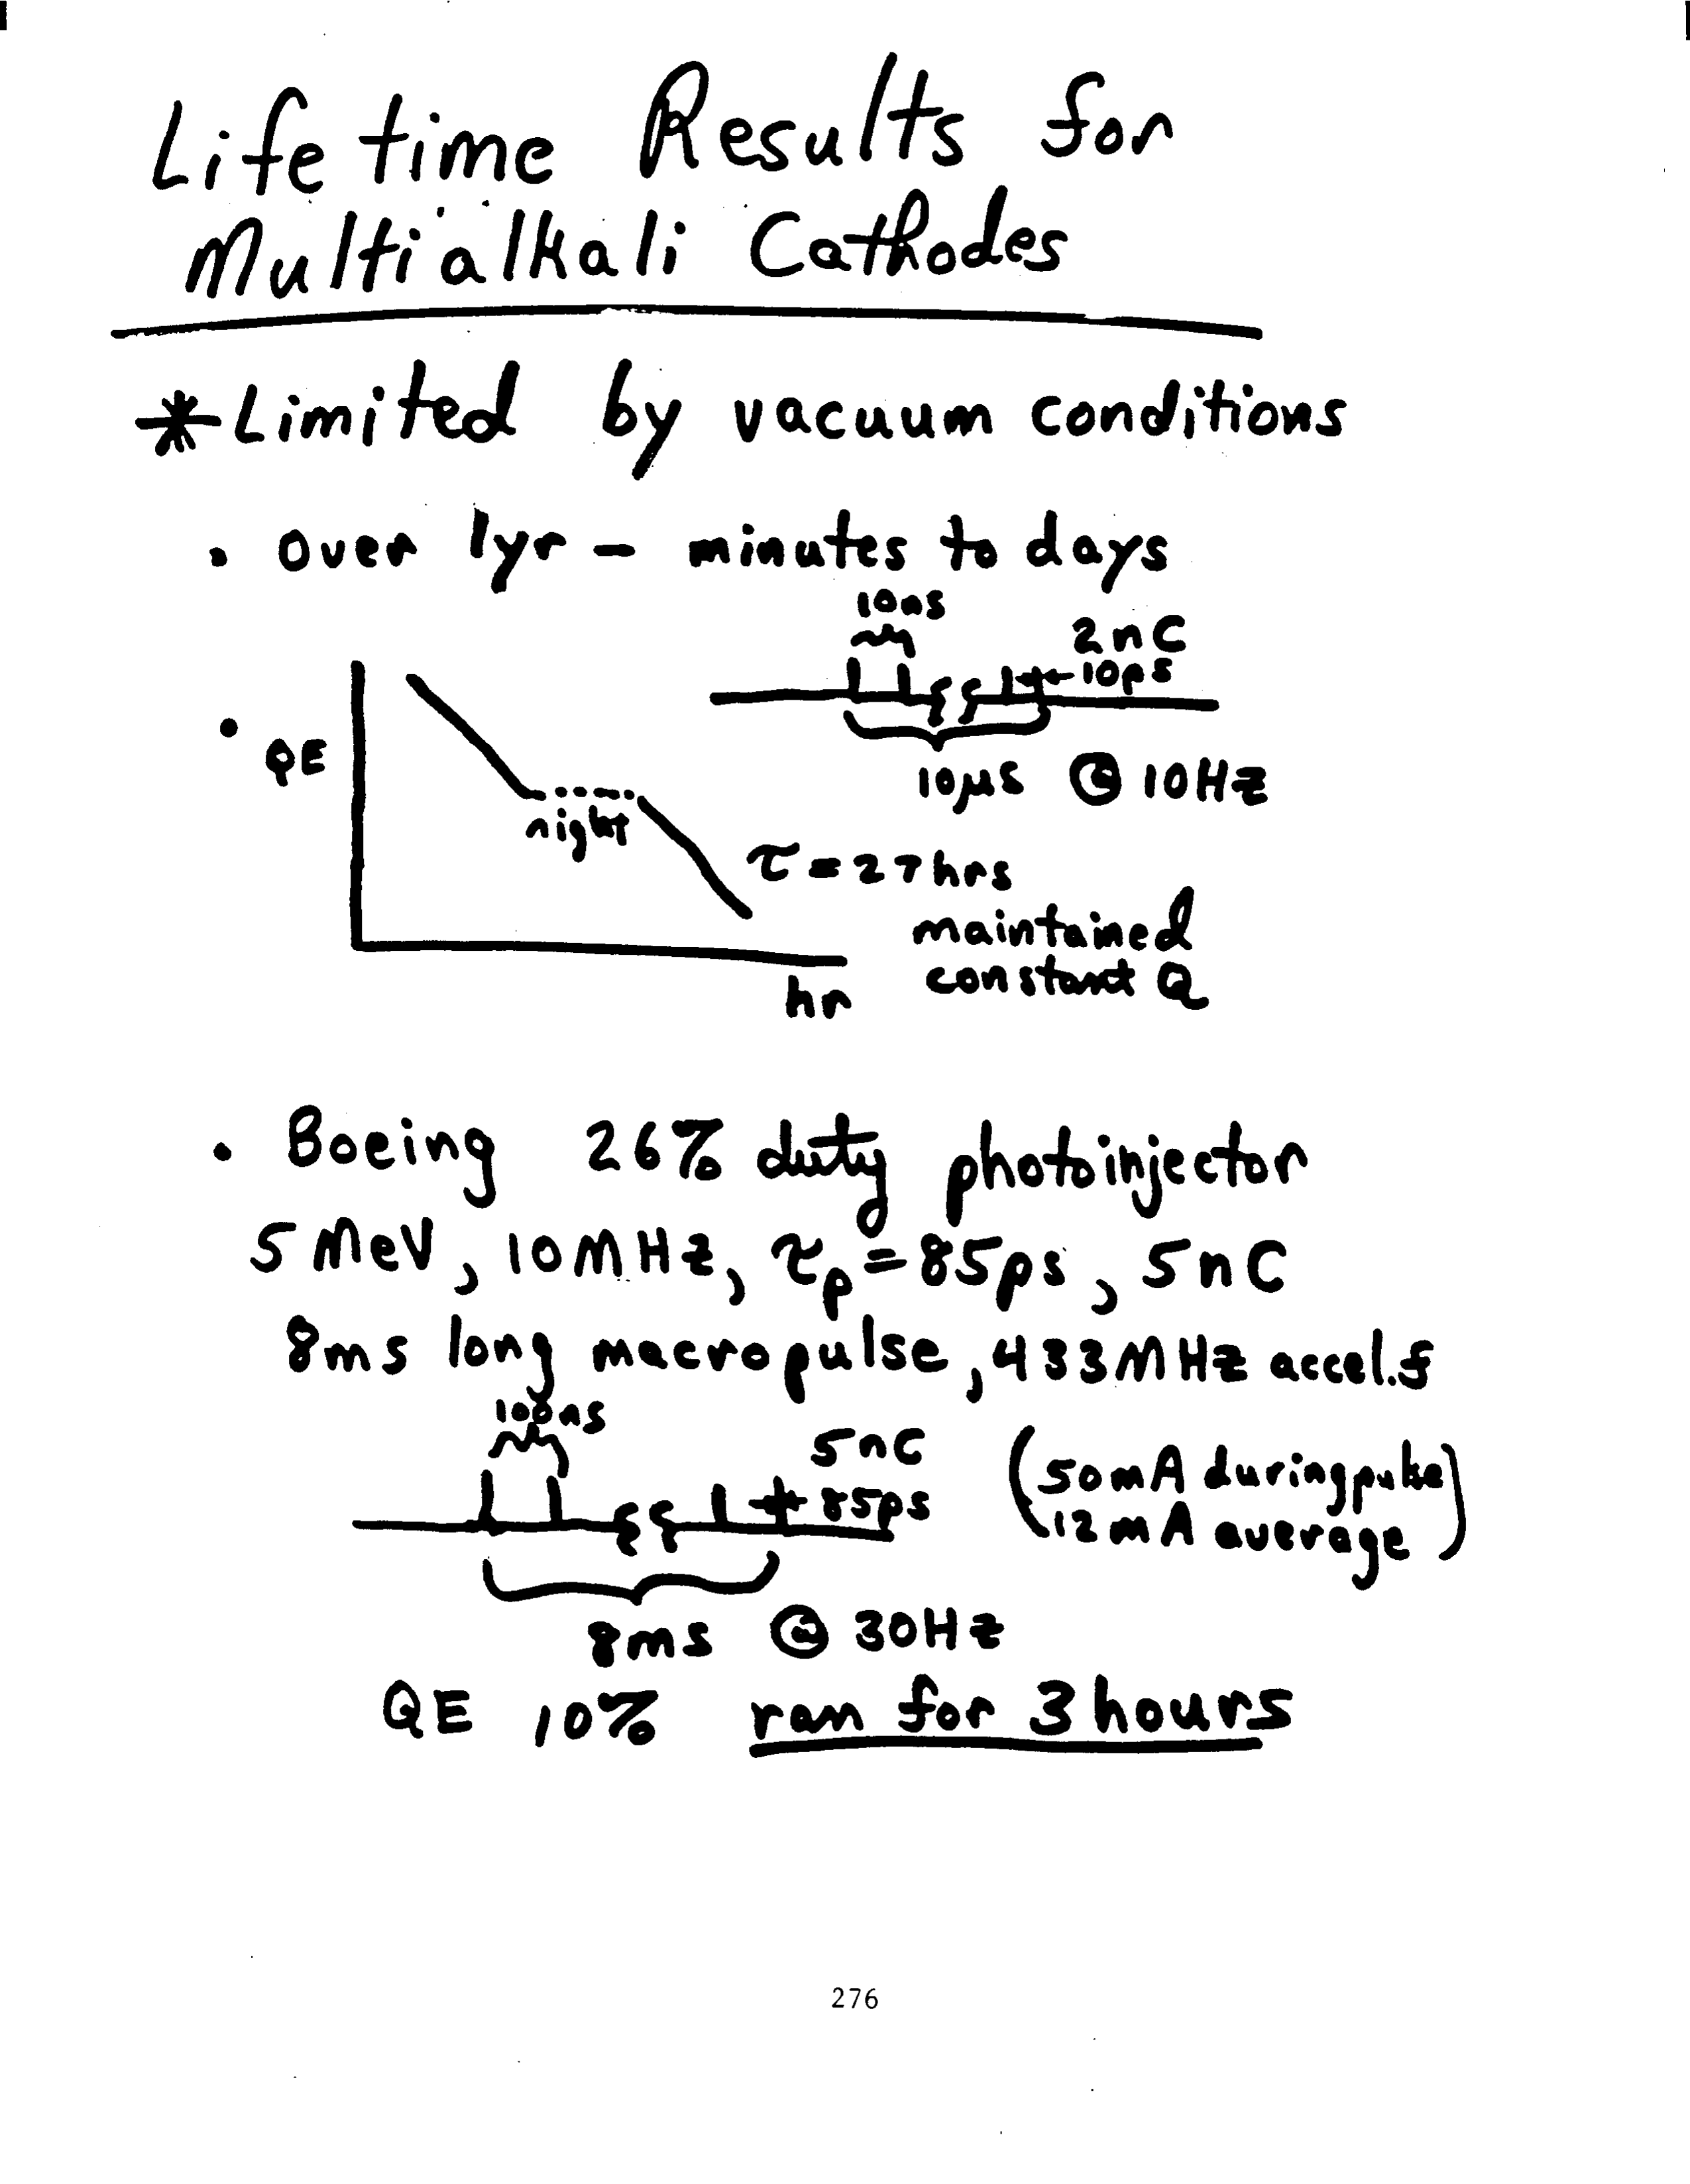 Lifetime Results for
Multialkali Cathodes
* Limited by vacuum conditions
• Over 1yr – minutes to days
10ns
2nC
10ps
• QE
10μs @ 10Hz
night
τ = 27hrs
maintained
constant Q
hr
• Boeing 26% duty photoinjector
5 MeV, 10MHz, τp = 85ps, 5nC
8ms long macropulse, 433MHz accel. f
100ns
5nC
85ps
(50mA during pulse
12mA average)
8ms @ 30Hz
QE 10% ran for 3 hours
276